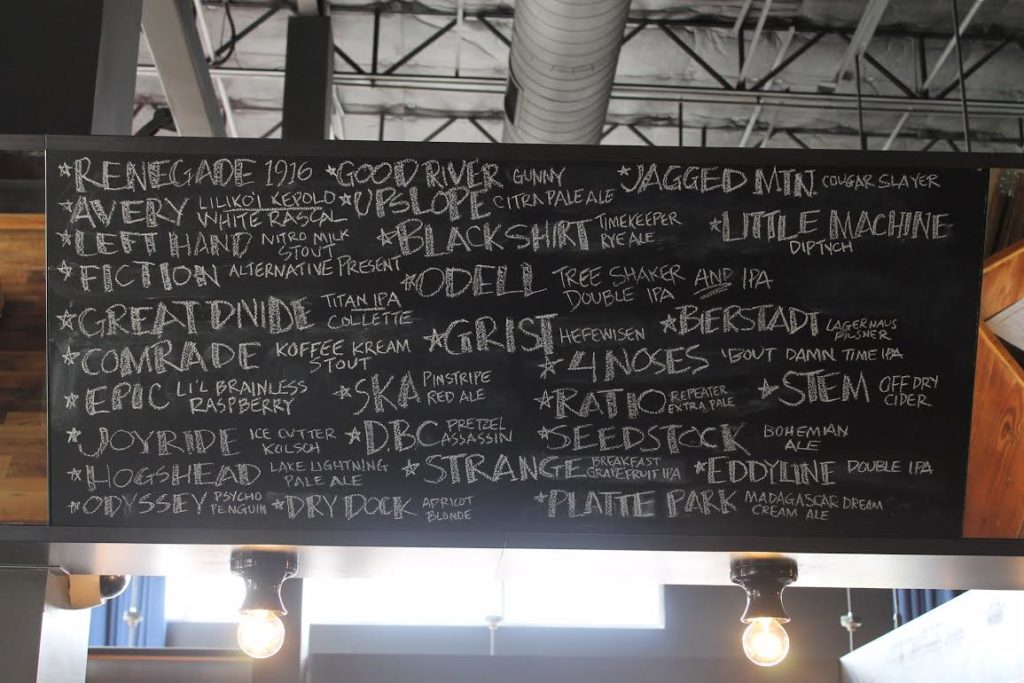 *RENEGADE 1916 *GOOD RIVER GUNNY *JAGGED MTN. COUGAR SLAYER
*AVERY LILIKO'I KEPOLO WHITE RASCAL *UPSLOPE CITRA PALE ALE
*LEFT HAND NITRO MILK STOUT *BLACKSHIRT TIMEKEEPER RYE ALE *LITTLE MACHINE DIPTYCH
*FICTION ALTERNATIVE PRESENT *ODELL TREE SHAKER AND IPA DOUBLE IPA
*GREAT DIVIDE TITAN IPA COLLETTE *GRIST HEFEWISEN *BIERSTADT LAGERHAUS PILSNER
*COMRADE KOFFEE KREAM STOUT *4 NOSES 'BOUT DAMN TIME IPA
*EPIC LI'L BRAINLESS RASPBERRY *SKA PINSTRIPE RED ALE *RATIO REPEATER EXTRA PALE *STEM OFF DRY CIDER
*JOYRIDE ICE CUTTER KOLSCH *D.B.C. PRETZEL ASSASSIN *SEEDSTOCK BOHEMIAN ALE
*HOGSHEAD LAKE LIGHTNING PALE ALE *STRANGE BREAKFAST GRAPEFRUIT IPA *EDDYLINE DOUBLE IPA
*ODYSSEY PSYCHO PENGUIN *DRY DOCK APRICOT BLONDE *PLATTE PARK MADAGASCAR DREAM CREAM ALE